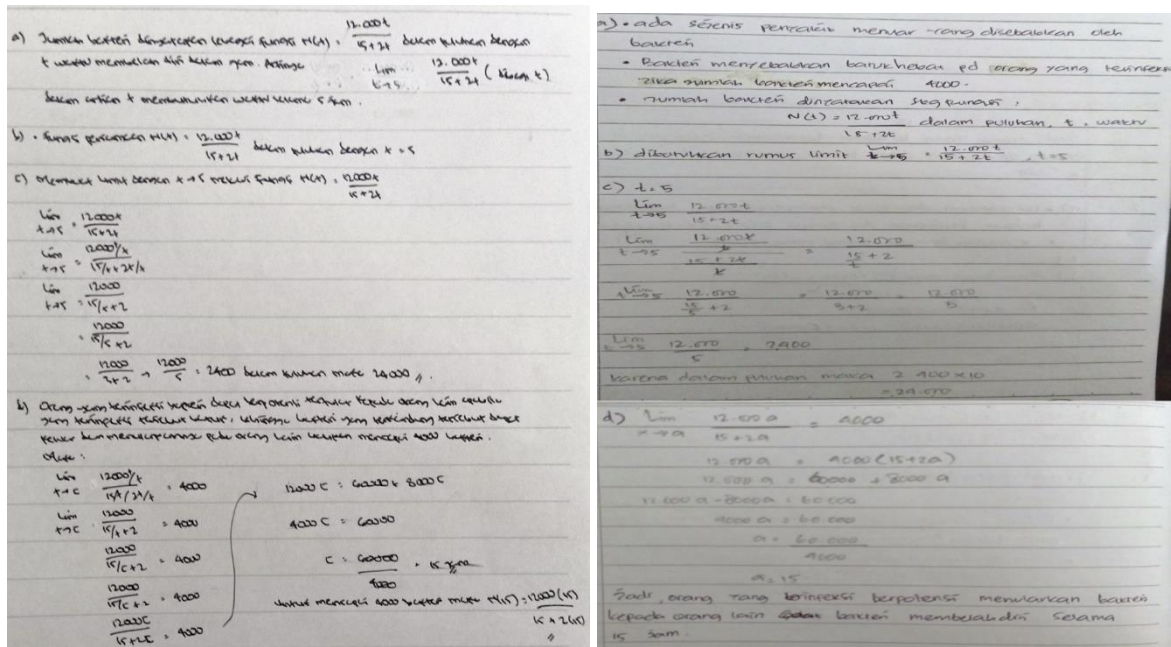 a) Jumlah bakteri dinyatakan dengan fungsi N(t) = 12.000t / 15+2t dalam puluhan dengan
t waktu membelah diri dalam jam.
Lim t→5 12.000t / 15+2t
dalam artian t membutuhkan waktu selama 5 jam.
b) • fungsi N(t) = 12.000t / 15+2t dalam puluhan dengan t = 5
c) limit dengan t→5 fungsi N(t) = 12000t / 15+2t
Lim t→5 = 12000t / 15+2t
Lim t→5 = 12000t/t / 15/t + 2t/t
Lim t→5 = 12000 / 15/t + 2
= 12000 / 15/5 + 2
= 12000 / 3+2 → 12000 / 5 = 2400 dalam puluhan maka 24000 //.
d) Orang yang terinfeksi bakteri dapat berpotensi kepada orang lain
yang terinfeksi tersebut bakteri yang tersebut dapat
keluar dan pada orang lain mencapai 4000 bakteri.
Maka :
Lim t→c 12000t/t / 15/t / 2t/t = 4000
Lim t→c 12000 / 15/t + 2 = 4000
12000 / 15/c + 2 = 4000
12000 / 15/c + 2 = 4000
12000c / 15+2c = 4000
12000 c = 60000 + 8000 c
4000 c = 60000
c = 60000 / 4000 = 15 jam
untuk mencapai 4000 bakteri maka N(15) = 12000(15) / 15+2(15) //
a) • ada sejenis penyakit menular yang disebabkan oleh
bakteri
• Bakteri menyebabkan batuk hebat pd orang yang terinfeksi
jika jumlah bakteri mencapai 4000.
• jumlah bakteri dinyatakan sbg fungsi,
N(t) = 12.000t / 15+2t dalam puluhan, t = waktu
b) dibutuhkan rumus limit Lim t→5 = 12.000t / 15+2t , t=5
c) t = 5
Lim t→5 12.000t / 15+2t
Lim t→5 12.000t / t / 15+2t / t = 12.000 / 15/t + 2
Lim t→5 12.000 / 15/5 + 2 = 12.000 / 3+2 = 12.000 / 5
Lim t→5 12.000 / 5 = 2400
karena dalam puluhan maka 2.400 x 10
= 24.000
d) Lim x→a 12.000 a / 15+2a = 4000
12.000 a = 4000 (15+2a)
12.000 a = 60000 + 8000 a
12.000 a - 8000 a = 60.000
4000 a = 60.000
a = 60.000 / 4000
a = 15
Jadi, orang yang terinfeksi berpotensi menularkan bakteri
kepada orang lain bakteri membelah diri selama
15 jam.